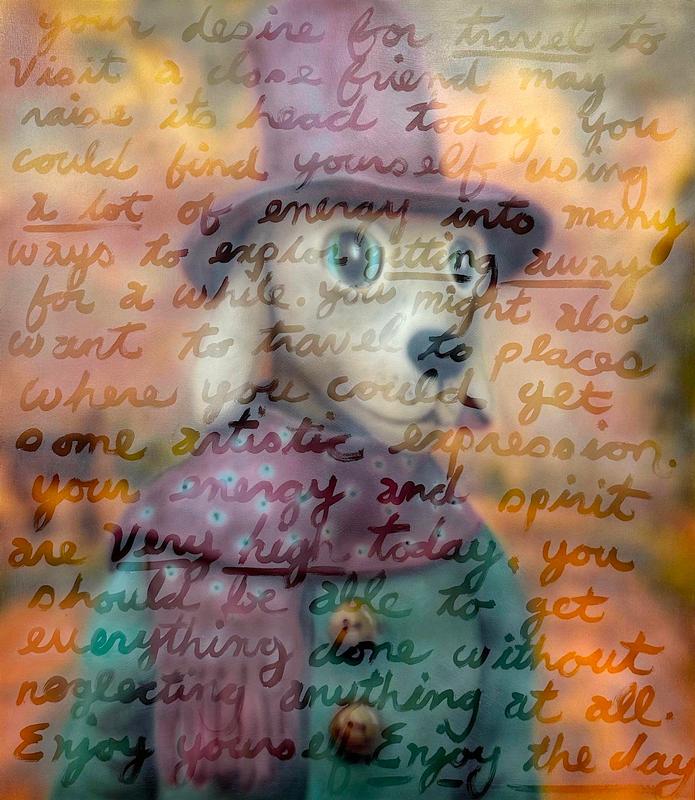 your desire for travel to
Visit a close friend may
raise its head today. you
could find yourself using
a lot of energy into many
ways to explor getting away
for a while. you might also
want to travel to places
where you could get
some artistic expression.
your energy and spirit
are Very high today, you
should be able to get
everything done without
neglecting anything at all.
Enjoy yourself Enjoy the day